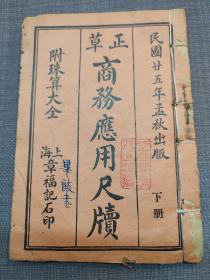 民國廿五年孟秋出版
下册
正草
商務應用尺牘
附珠算大全
上海章福記石印